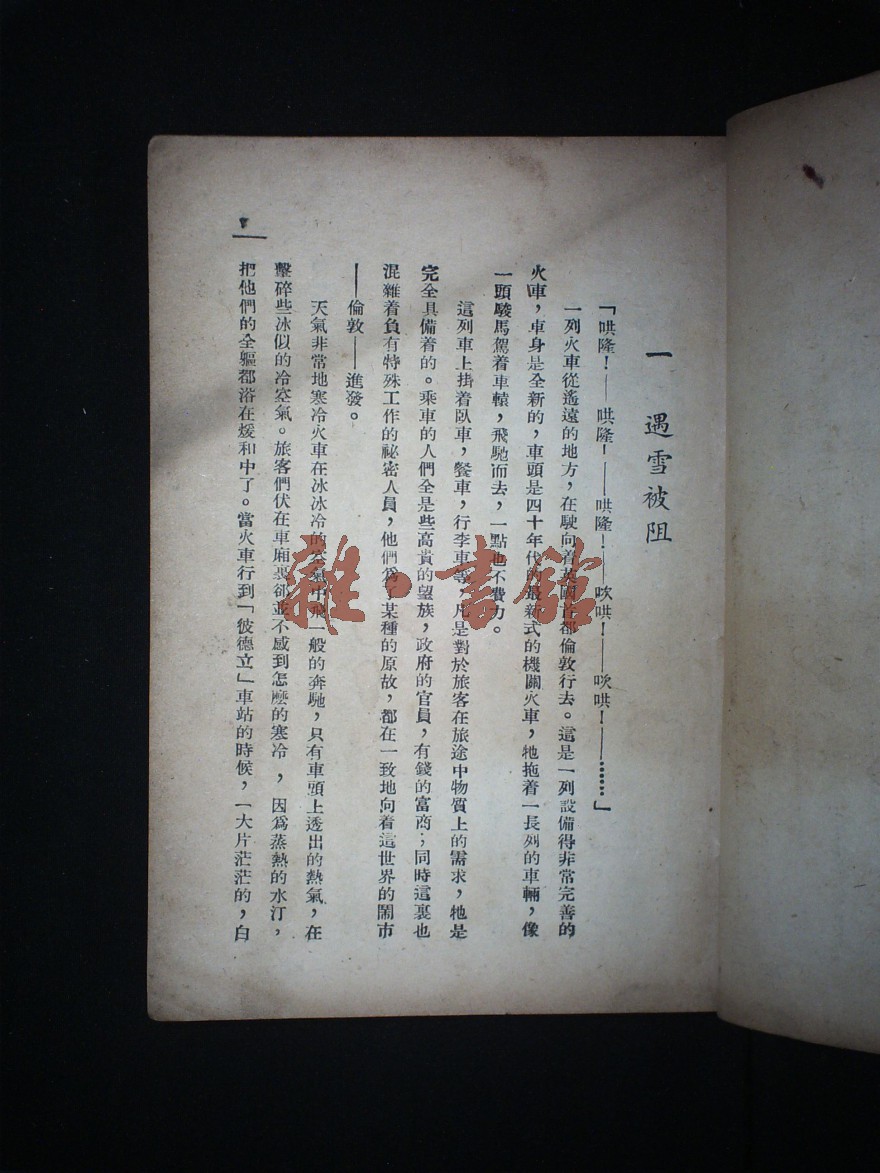 一　遇雪被阻
「哄隆！——哄隆！——哄隆！——吹哄！——吹哄！——……」
一列火車從遙遠的地方，在駛向着英國首都倫敦行去。這是一列設備得非常完善的
火車，車身是全新的，車頭是四十年代的最新式的機關火車，牠拖着一長列的車輛，像
一頭駿馬駕着車轅，飛馳而去，一點也不費力。
這列車上掛着臥車，餐車，行李車等，凡是對於旅客在旅途中物質上的需求，牠是
完全具備着的。乘車的人們全是些高貴的望族，政府的官員，有錢的富商；同時這裏也
混雜着負有特殊工作的祕密人員，他們爲了某種的原故，都在一致地向着這世界的鬧市
——倫敦——進發。
天氣非常地寒冷火車在冰冰冷的寒氣中飛一般的奔馳，只有車頭上透出的熱氣，在
擊碎些冰似的冷空氣。旅客們伏在車廂裏卻並不感到怎麼的寒冷，因爲蒸熱的水汀，
把他們的全軀都浴在煖和中了。當火車行到「彼德立」車站的時候，一大片茫茫的，白
雜·書館